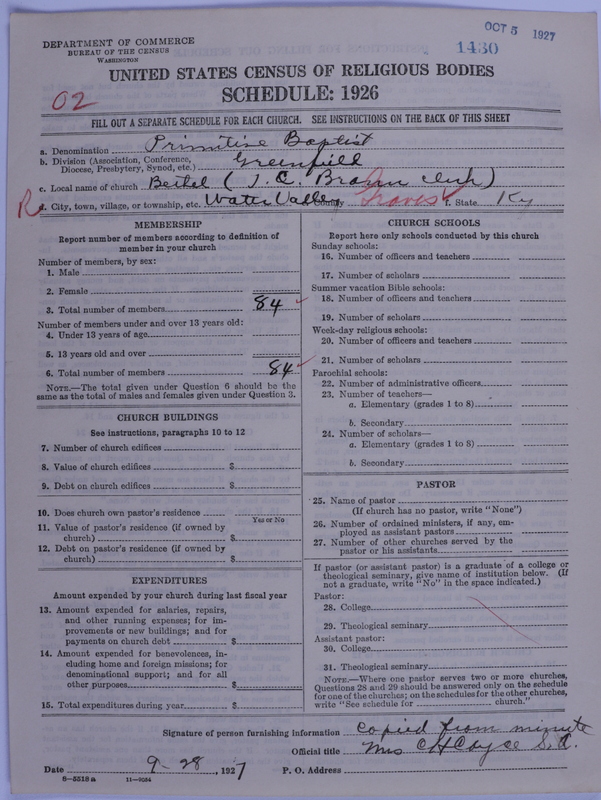 OCT 5 1927
1430
DEPARTMENT OF COMMERCE
BUREAU OF THE CENSUS
WASHINGTON
UNITED STATES CENSUS OF RELIGIOUS BODIES
SCHEDULE: 1926
02
FILL OUT A SEPARATE SCHEDULE FOR EACH CHURCH. SEE INSTRUCTIONS ON THE BACK OF THIS SHEET
a. Denomination Primitive Baptist
b. Division (Association, Conference, Diocese, Presbytery, Synod, etc.) Greenfield
c. Local name of church Bethel (J. C. clerk)
d. City, town, village, or township, etc. Water Valley County Graves f. State Ky
MEMBERSHIP
Report number of members according to definition of
member in your church
Number of members, by sex:
1. Male
2. Female
3. Total number of members 84
Number of members under and over 13 years old:
4. Under 13 years of age
5. 13 years old and over
6. Total number of members 84
NOTE.—The total given under Question 6 should be the
same as the total of males and females given under Question 3.
CHURCH BUILDINGS
See instructions, paragraphs 10 to 12
7. Number of church edifices
8. Value of church edifices $
9. Debt on church edifices $
10. Does church own pastor's residence
Yes or No
11. Value of pastor's residence (if owned by
church) $
12. Debt on pastor's residence (if owned by
church) $
EXPENDITURES
Amount expended by your church during last fiscal year
13. Amount expended for salaries, repairs,
and other running expenses; for im-
provements or new buildings; and for
payments on church debt $
14. Amount expended for benevolences, in-
cluding home and foreign missions; for
denominational support; and for all
other purposes $
15. Total expenditures during year $
CHURCH SCHOOLS
Report here only schools conducted by this church
Sunday schools:
16. Number of officers and teachers
17. Number of scholars
Summer vacation Bible schools:
18. Number of officers and teachers
19. Number of scholars
Week-day religious schools:
20. Number of officers and teachers
21. Number of scholars
Parochial schools:
22. Number of administrative officers
23. Number of teachers—
a. Elementary (grades 1 to 8)
b. Secondary
24. Number of scholars—
a. Elementary (grades 1 to 8)
b. Secondary
PASTOR
25. Name of pastor
(If church has no pastor, write "None")
26. Number of ordained ministers, if any, em-
ployed as assistant pastors
27. Number of other churches served by the
pastor or his assistants
If pastor (or assistant pastor) is a graduate of a college or
theological seminary, give name of institution below. (If
not a graduate, write "No" in the space indicated.)
Pastor:
28. College
29. Theological seminary
Assistant pastor:
30. College
31. Theological seminary
NOTE.—Where one pastor serves two or more churches,
Questions 28 and 29 should be answered only on the schedule
for one of the churches; on the schedules for the other churches,
write "See schedule for church."
Signature of person furnishing information copied from minute
Official title Mrs C H Cayce S. A.
Date 9-28, 1927 P. O. Address
8-5518a 11-9084